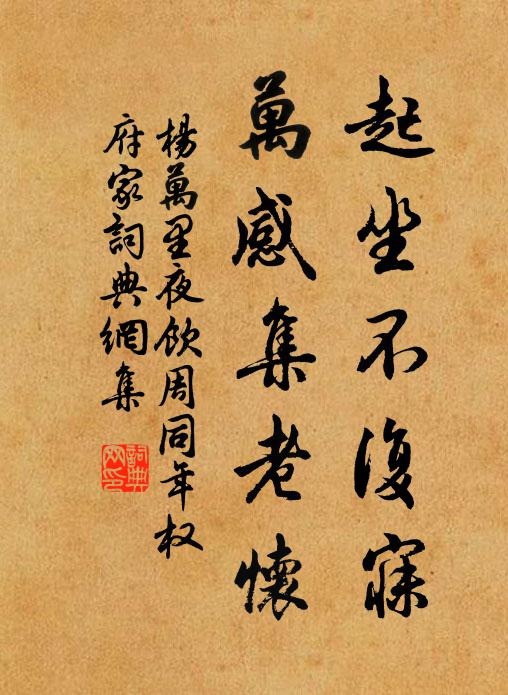 起坐不復寐
萬感集老懷
楊萬里夜飲周同年权
府家詞典網集
詞典
网印